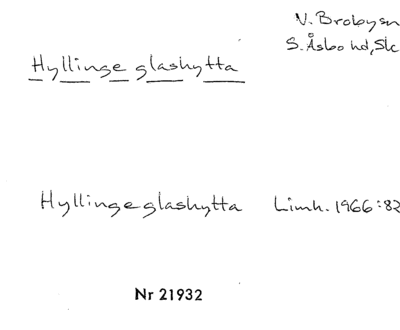 V. Broby sn
S. Åsbo hd, Sk
Hyllinge glashytta
Hyllinge glashytta Limh. 1966:82
Nr 21932